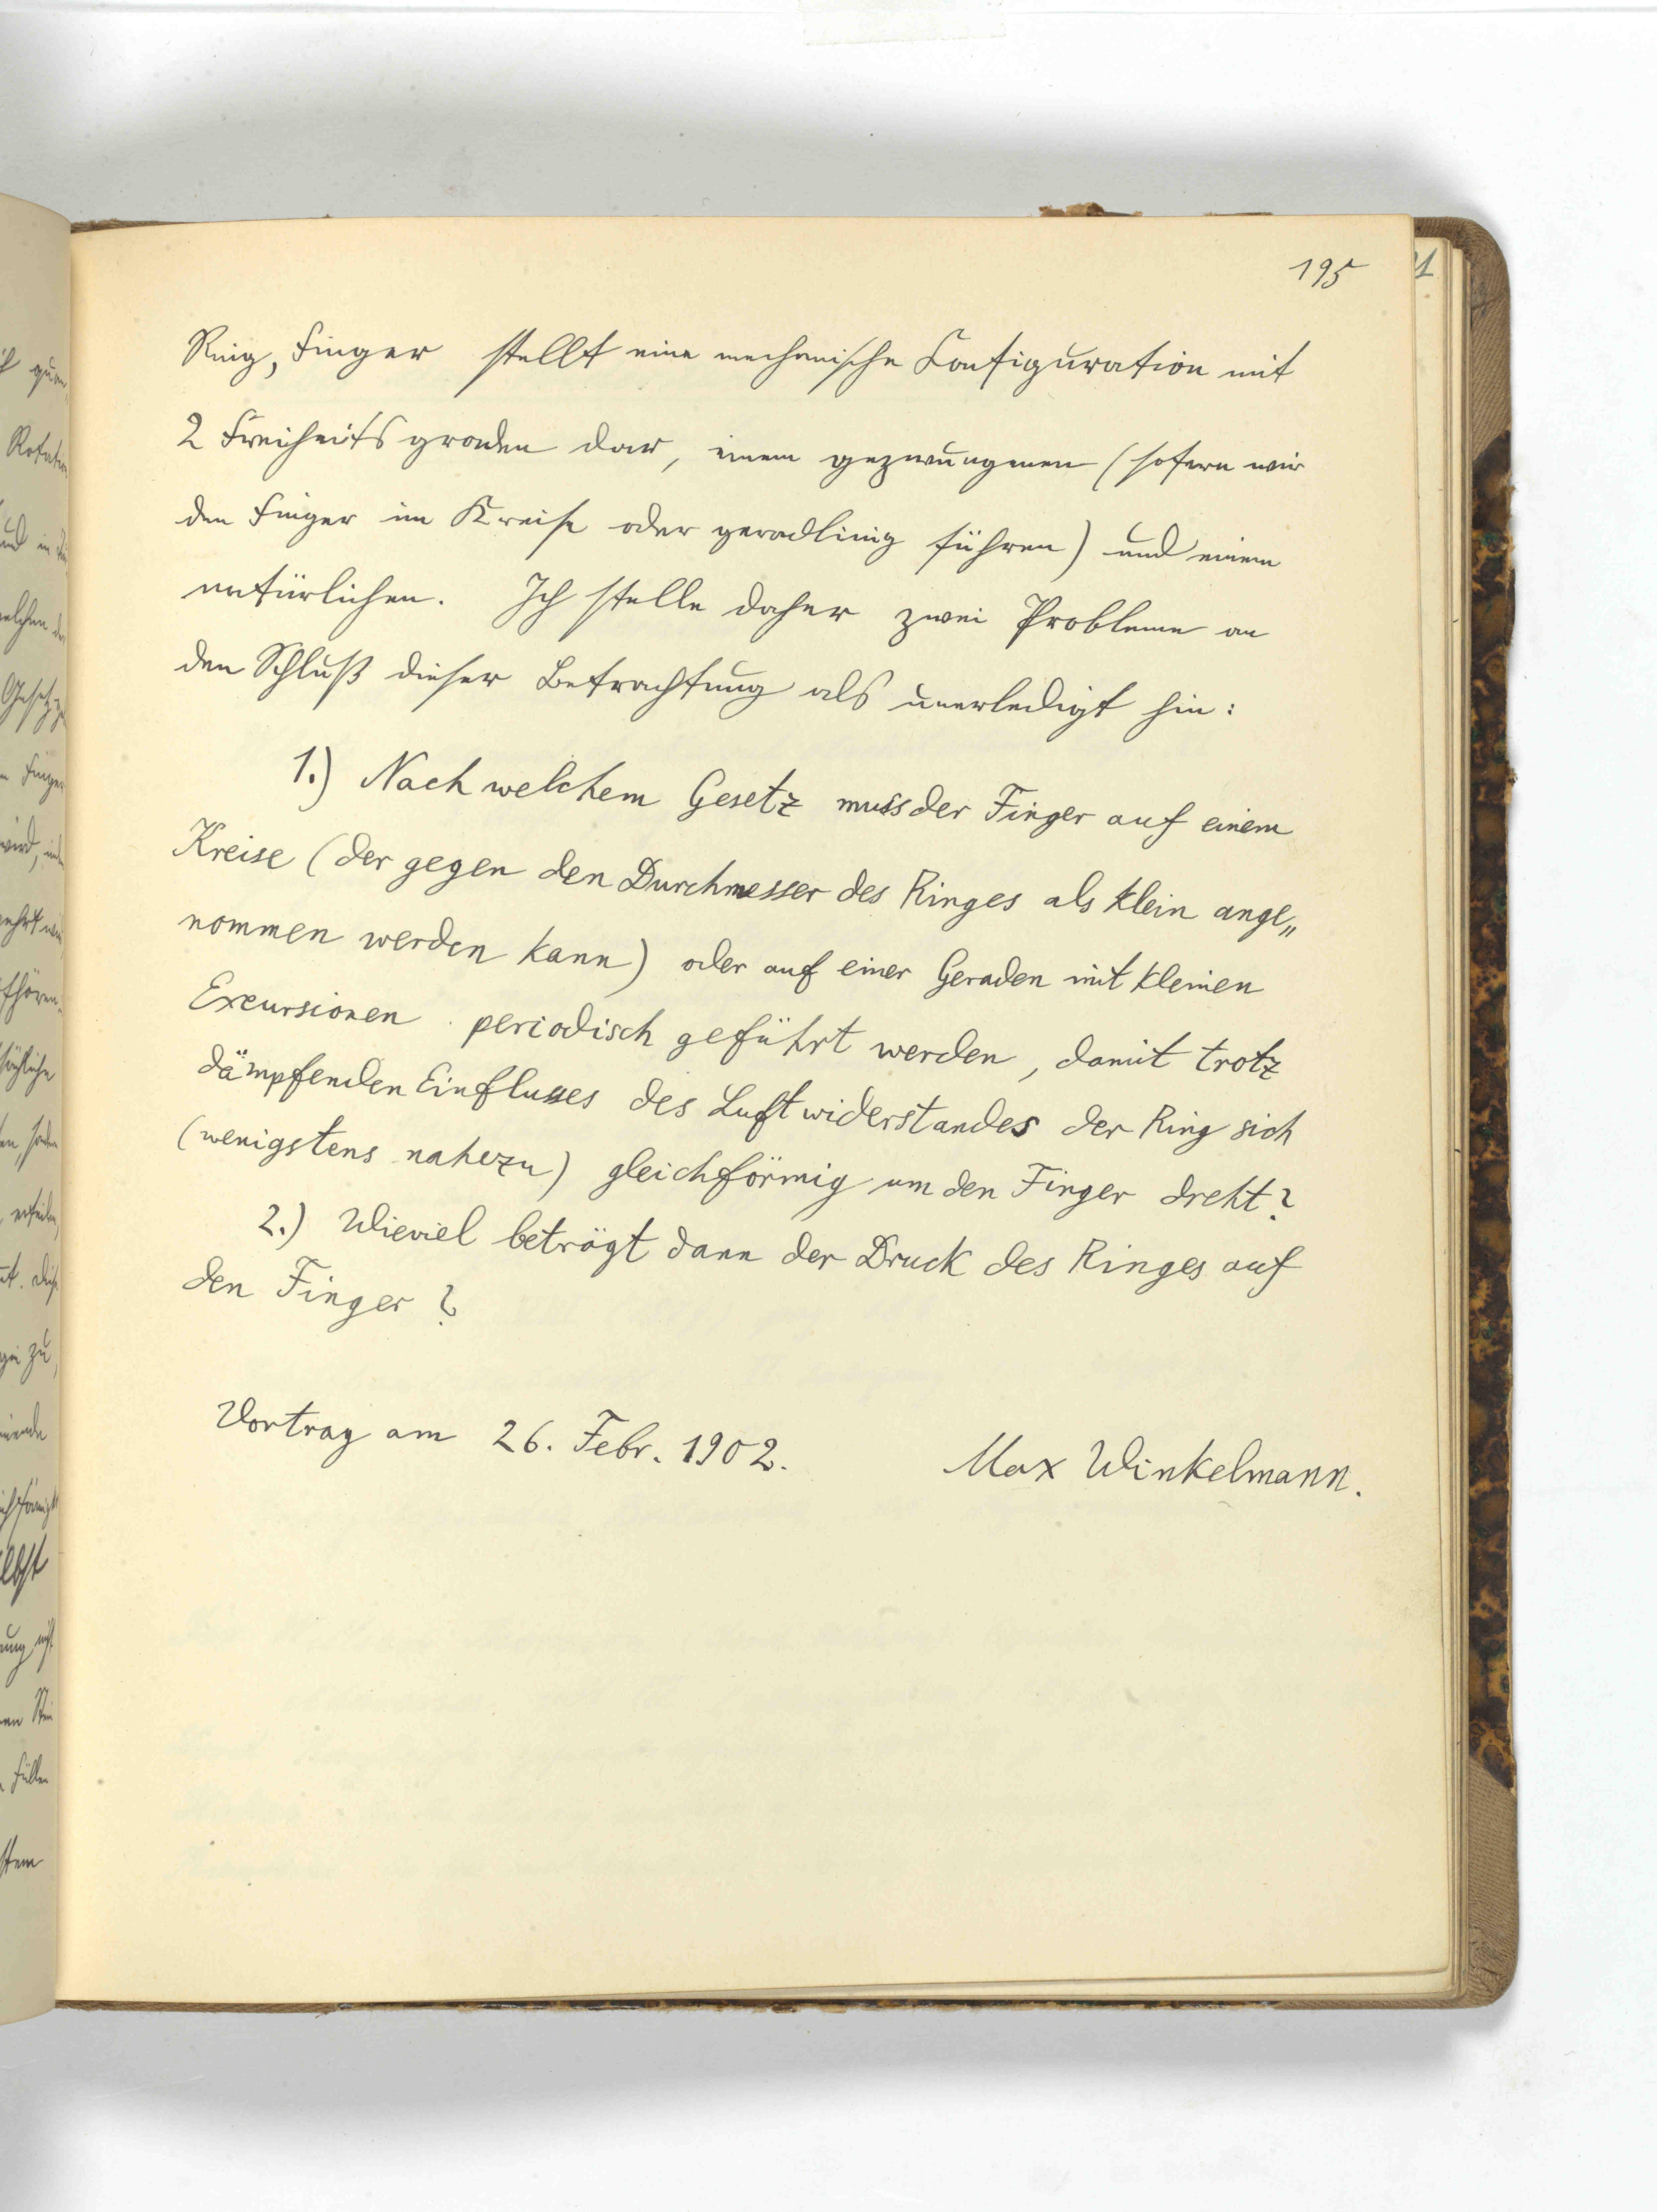 195
Ring, Finger stellt eine mechanische Configuration mit
2 Freiheitsgraden dar, einem gezwungenen (sofern wir
den Finger im Kreise oder geradlinig führen) und einem
natürlichen. Ich stelle daher zwei Probleme an
den Schluß dieser Betrachtung als unerledigt hin:
1.) Nach welchem Gesetz muss der Finger auf einem
Kreise (der gegen den Durchmesser des Ringes als klein ange„
nommen werden kann) oder auf einer Geraden mit kleinen
Excursionen periodisch geführt werden, damit trotz
dämpfenden Einflusses des Luftwiderstandes der Ring sich
(wenigstens nahezu) gleichförmig um den Finger dreht?
2.) Wieviel beträgt dann der Druck des Ringes auf
den Finger?
Vortrag am 26. Febr. 1902.
Max Winkelmann.